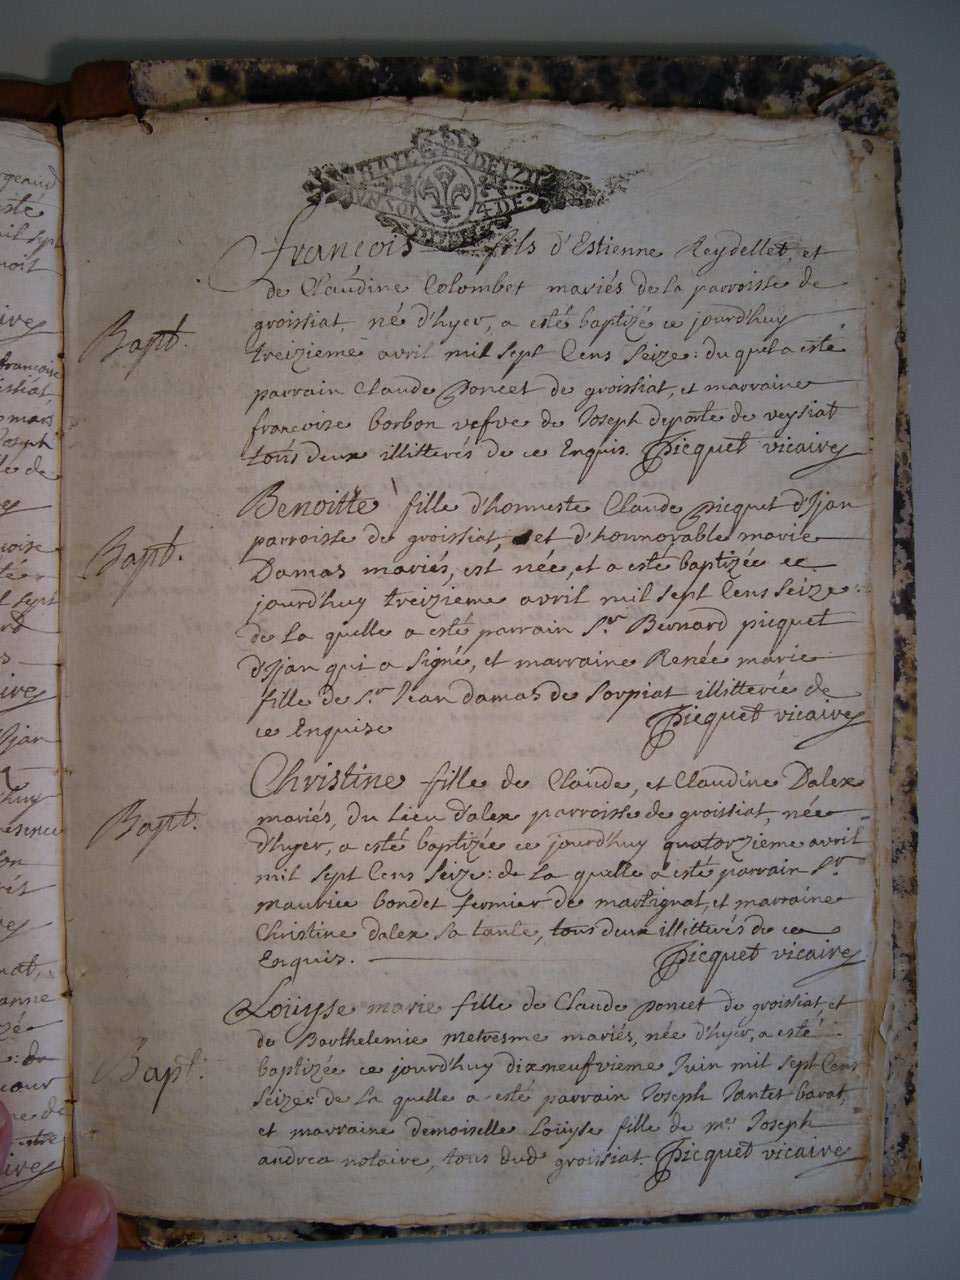 françois fils d'Estienne Reydellet, et
de Claudine Colombet mariés de la parroisse de
groissiat, né d'hyer, a esté baptizé ce jourd'huy
treizieme avril mil sept Cens Seize: du quel a esté
parrain Claude Poncet de groissiat, et marraine
francoise borbon vefve de Joseph deporte de veysiat
tous deux illitterés de ce Enquis. Picquet vicaire
Bapt.
Benoitte fille d'honneste Claude picquet d'Ijan
parroisse de groissiat, et d'honnorable marie
Damas mariés, est née, et a esté baptizée ce
jourd'huy treizieme avril mil sept Cens Seize:
de la quelle a esté parrain Sr. Bernard picquet
d'Ijan qui a signé, et marraine Renée marie
fille de Sr. Jean damas de Sorpiat illitterée de
ce Enquise Picquet vicaire
Bapt.
Christine fille de Claude, et Claudine Dalex
mariés, du Lieu d'alex parroisse de groissiat, née
d'hyer, a esté baptizée ce jourd'huy quatorzieme avril
mil sept Cens Seize: de la quelle a esté parrain Sr.
maurice bondet fermier de martignat, et marraine
Christine dalex sa tante, tous deux illitterés de ce
Enquis. Picquet vicaire
Bapt.
Loüyse marie fille de Claude poncet de groissiat, et
de Barthelemie metresme mariés, née d'hyer, a esté
baptizée ce jourd'huy dixneufvieme Juin mil sept Cens
Seize: de la quelle a esté parrain Joseph Tantet barat,
et marraine demoiselle Loüyse fille de me. Joseph
andrea notaire, tous dud. groissiat. Picquet vicaire
Bapt.